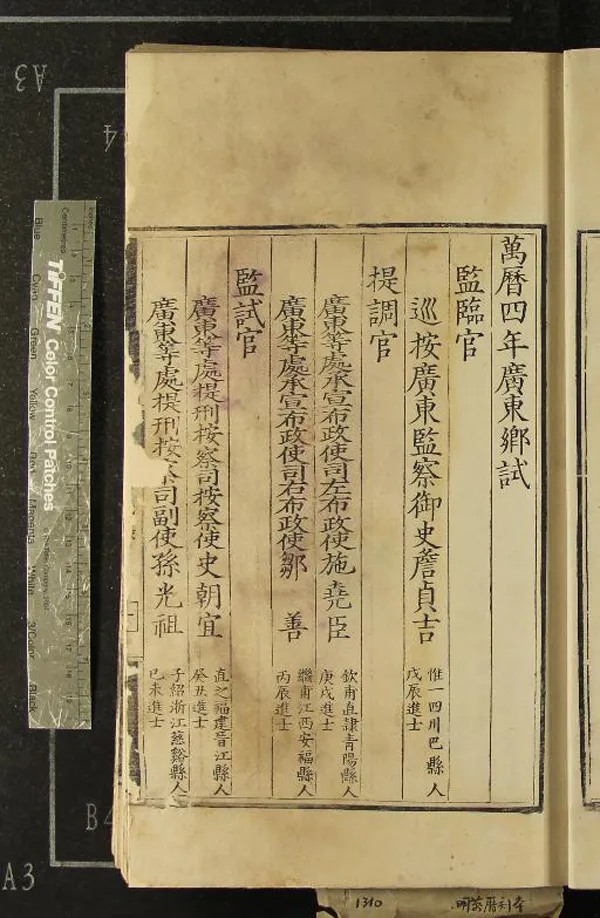 萬曆四年廣東鄉試
監臨官
巡按廣東監察御史詹貞吉
惟一四川巴縣人
戊辰進士
提調官
廣東等處承宣布政使司左布政使施堯臣
欽甫直隸青陽縣人
庚戌進士
廣東等處承宣布政使司右布政使鄒善
繼甫江西安福縣人
丙辰進士
監試官
廣東等處提刑按察司按察使史朝宜
直之福建晉江縣人
癸丑進士
廣東等處提刑按察司副使孫光祖
子紹浙江慈谿縣人
己未進士
A3
4
B4
A3
TIFFEN Color Control Patches
Centimetres
Blue
Cyan
Green
Yellow
Red
Magenta
White
3/Color
Black
1310
明萬曆刻本